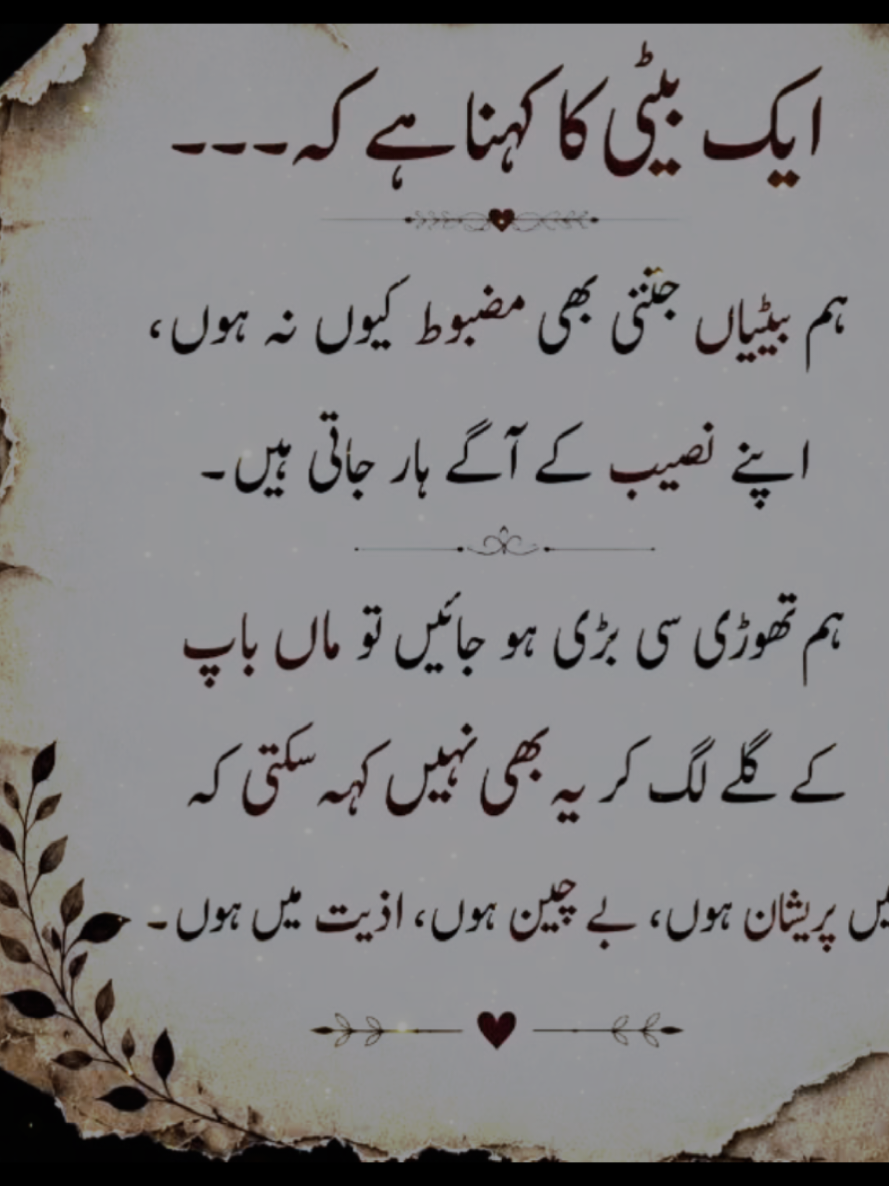 ایک بیٹی کا کہنا ہے کہ۔۔۔
ہم بیٹیاں جتنی بھی مضبوط کیوں نہ ہوں،
اپنے نصیب کے آگے ہار جاتی ہیں۔
ہم تھوڑی سی بڑی ہو جائیں تو ماں باپ
کے گلے لگ کر یہ بھی نہیں کہہ سکتی کہ
پریشان ہوں، بے چین ہوں، اذیت میں ہوں۔